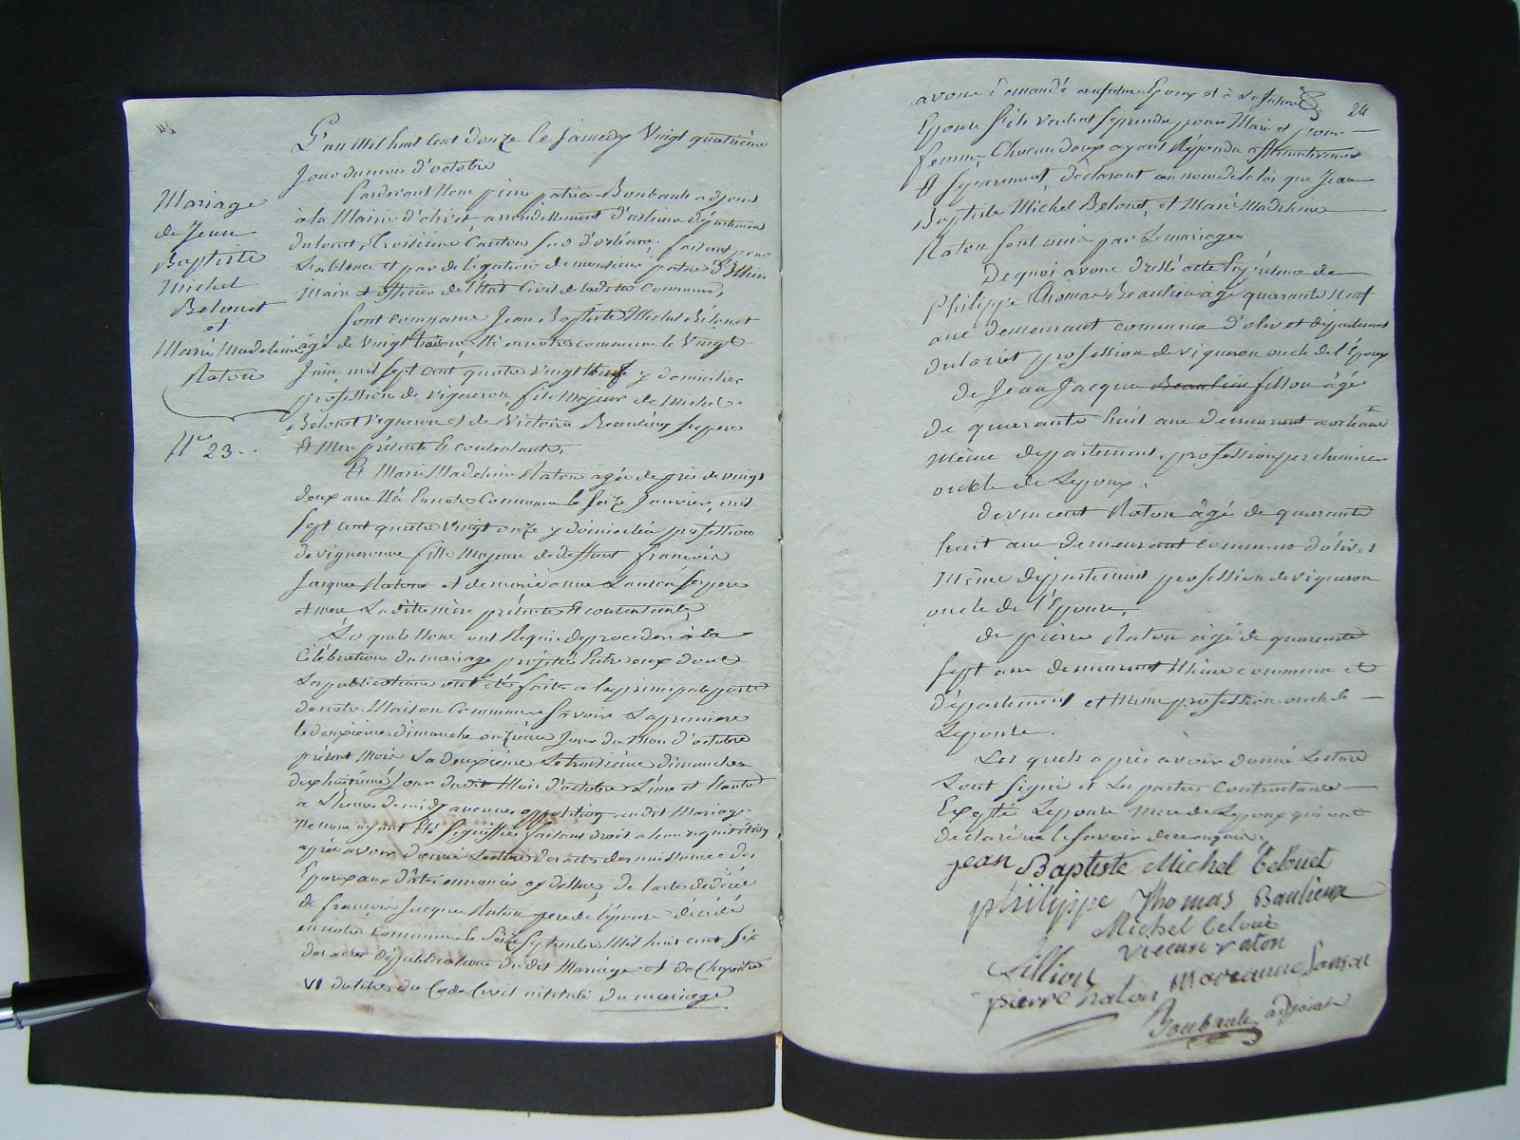 L'an mil huit cent Douze le Samedy Vingt quatrieme
Jour du mois d'octobre
Mariage
de Jean
Baptiste
Michel
Belouet
et
Marie Madeleine
Raton
N.º 23
Pardevant Nous pierre patrice Boubault adjoint
à la Mairie d'olivet arrondissement d'orleans département
du loiret, Troisieme Canton Sud d'orleans, faisant pour
L'absence et par délégation de monsieur
Maire et officier de l'état Civil de laditte Commune,
Sont comparus Jean Baptiste Michel Belouet
âgé de Vingt trois né en notre commune le Vingt
Juin mil sept cent quatre vingt neuf y domicilié
profession de vigneron fils Majeur de Michel
Belouet vigneron et de Victoire Beaulieux ses pere
et Mere présents et consentants,
Et Marie Madeleine Raton agée de près de vingt
deux ans Née En notre Commune le Seize Janvier, mil
Sept cent quatre Vingt onze y domiciliée profession
de vigneronne fille Majeure de deffunt françois
Jacque Raton et de marie anne Lanson ses pere
et mere Laditte mère présente et consentante,
Les quels Nous ont Requis de procéder à la
Célébration du mariage projetté Entre eux dont
Les publications ont été faites a la principale porte
de notre Maison Commune Savoir La premiere
le deuxieme dimanche onzieme Jour du Mois d'octobre
présent Mois La deuxieme Le troisieme dimanche
dixhuitieme Jour dudit Mois d'octobre
a L'heure de midy aucune opposition audit Mariage
Ne nous ayant été Signiffiée, faisant droit a leur requisition,
après avoir donné Lecture des actes de naissance des
Epoux aux dates énoncées cy dessus, de l'acte de décès
de françois Jacque Raton pere de l'épouse décédé
en notre commune le Seize Septembre Mil huit cent Six
des actes de publications du dit Mariage et du Chapitre
VI du titre du Code Civil intitulé du mariage
24
avons demandé au futur Epoux et à La future
Epouse s'ils veulent se prendre pour Mari et pour
femme, Chacun d'eux ayant Répondu affirmativement
et séparement, déclarons au nom de la loi que Jean
Baptiste Michel Belouet, et Marie Madeleine
Raton Sont unis par le mariage
De quoi avons dressé acte En présence de
Philippe Thomas Beaulieu âgé quarante Neuf
ans demeurant commune d'olivet département
du loiret profession de vigneron oncle de l'Epoux
de Jean Jacque Beaulieu fillon âgé
de quarante huit ans demeurant a orléans
Même département, profession
oncle de L'epoux.
de vincent Raton âgé de quarante
huit ans demeurant commune d'olivet
Même département profession de vigneron
oncle de l'Epouse,
de pierre Raton âgé de quarante
sept ans demeurant Même commune et
département et Même profession oncle de
L'epouse.
Les quels après avoir donné Lecture
Sont signé et Les parties Contractantes
Excepté L'epouse Mere de L'epoux qui ont
declaré ne le savoir de ce enquis.
jean Baptiste Michel belouet
philippe Thomas Baulieux
Michel beloue
vincen raton
fillion
Marianne Lanson
pierre raton
Boubault adjoint